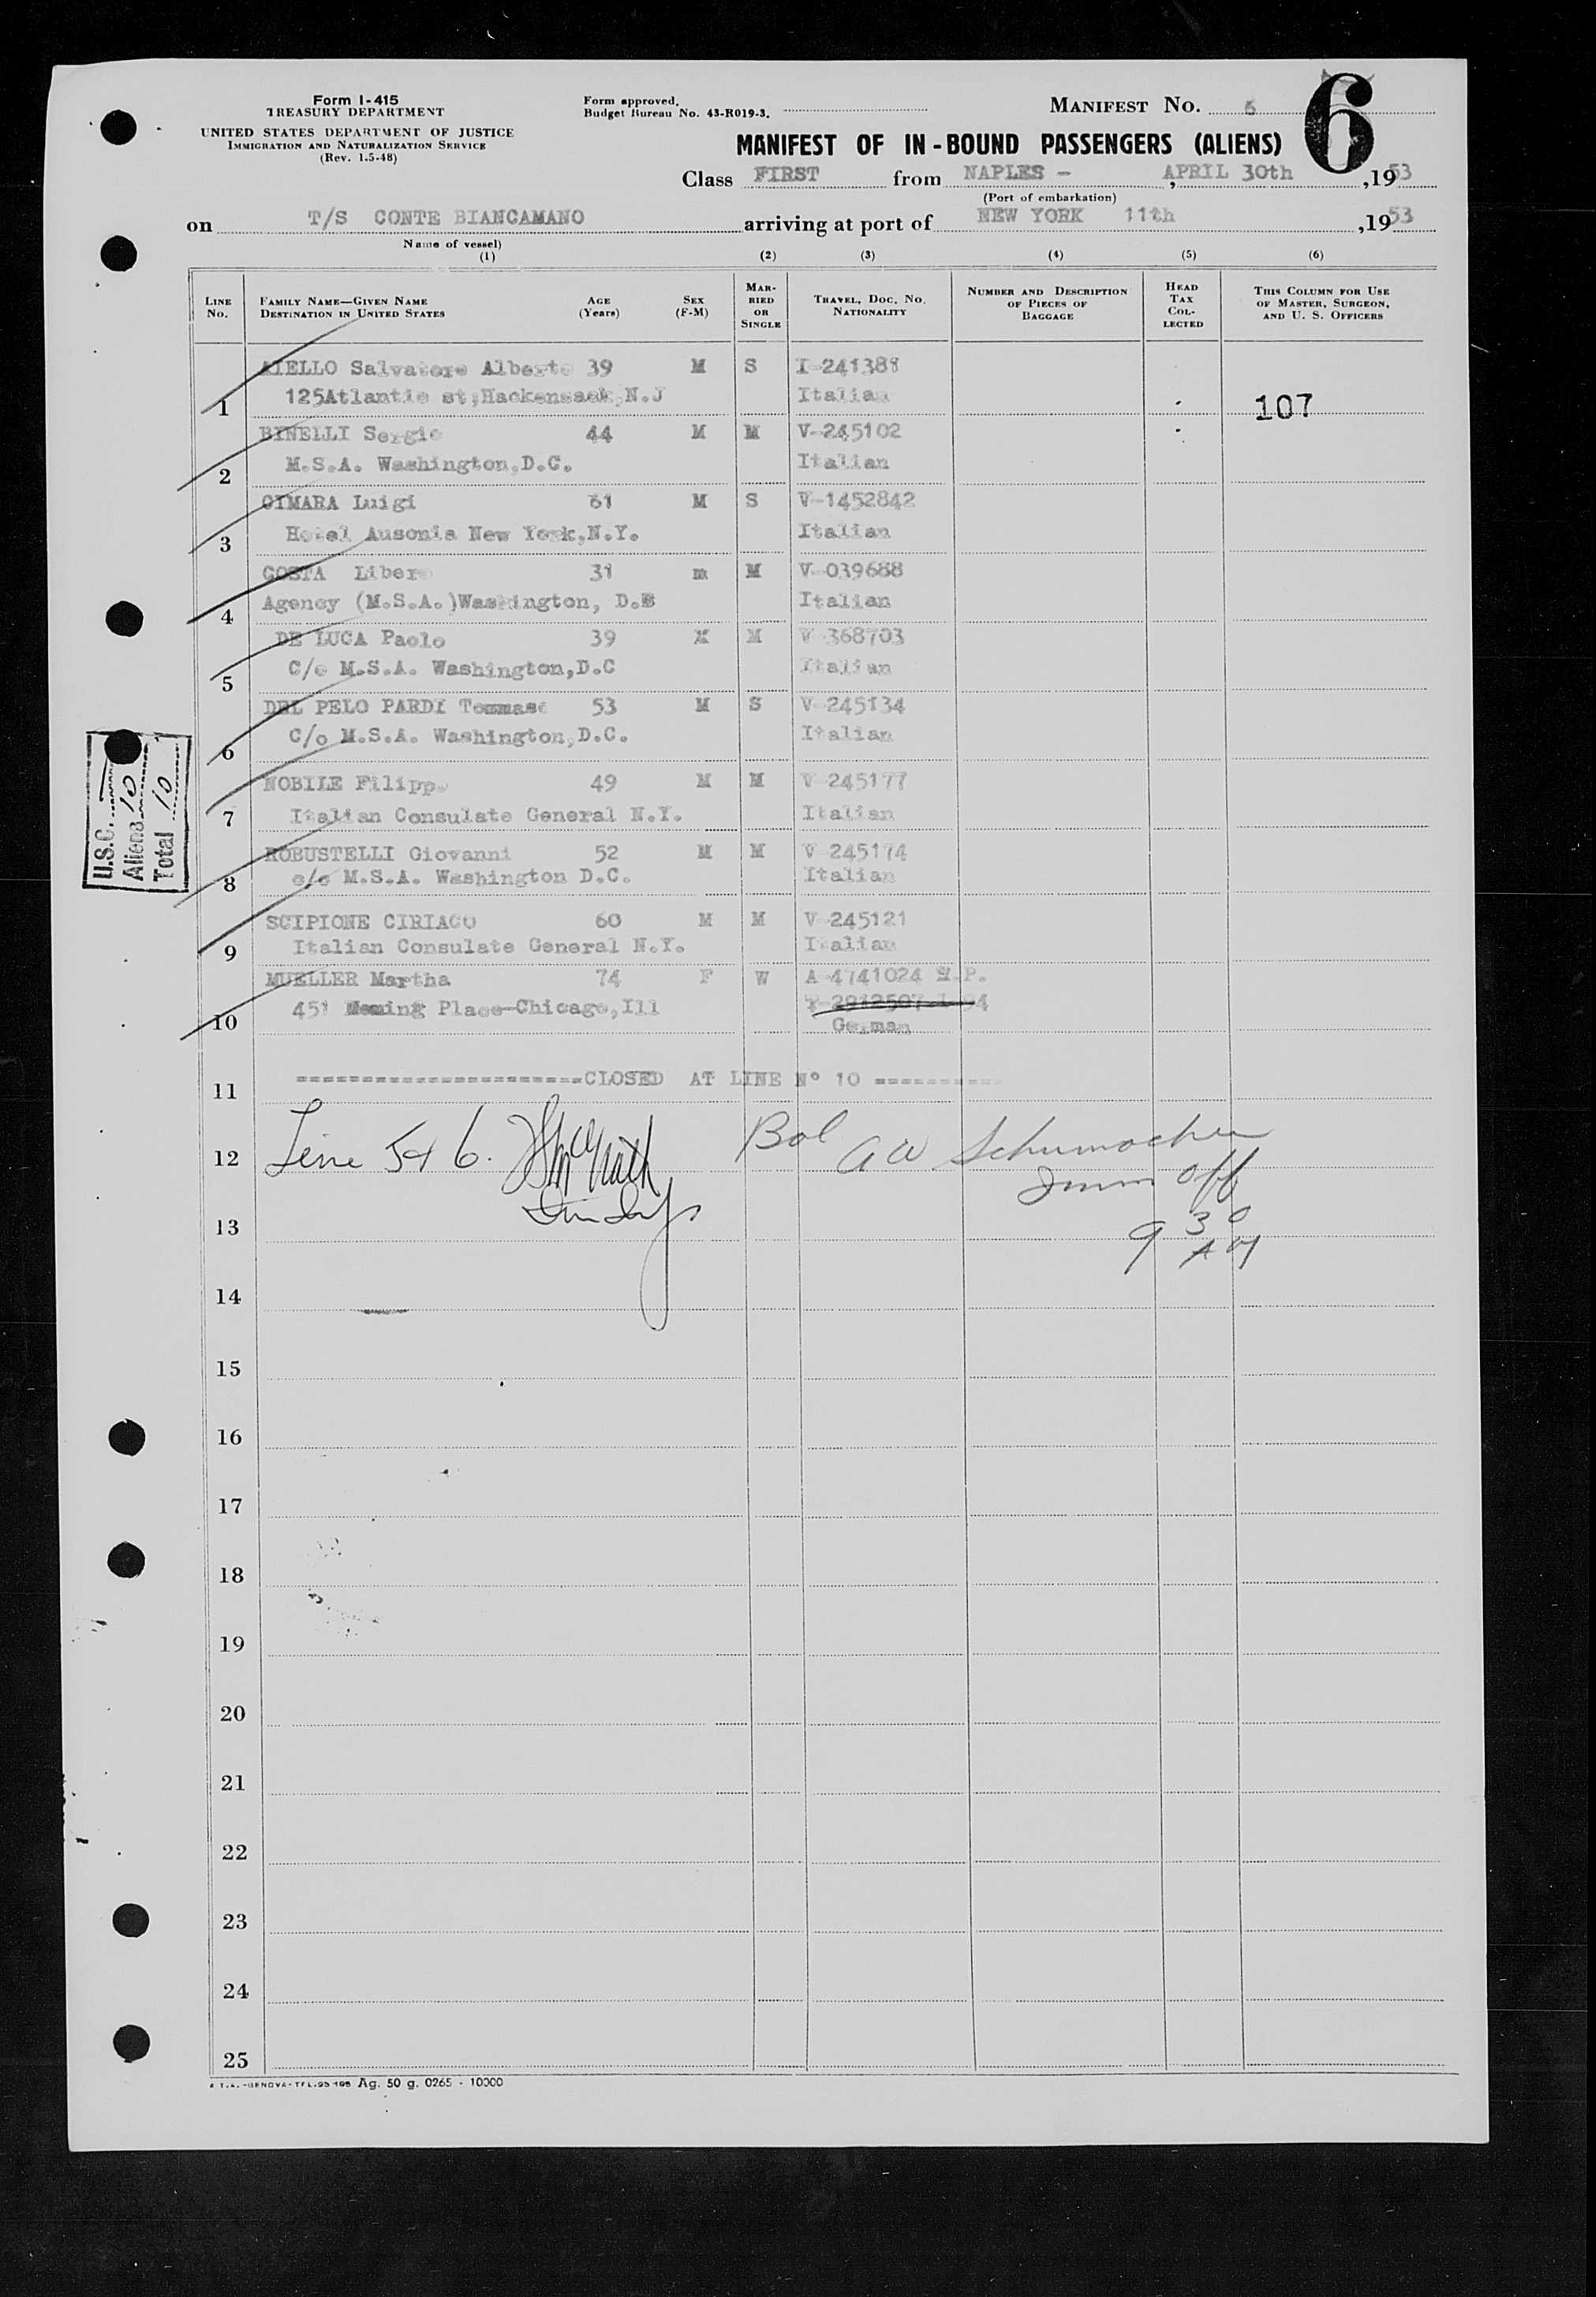 Form I-415
TREASURY DEPARTMENT
UNITED STATES DEPARTMENT OF JUSTICE
IMMIGRATION AND NATURALIZATION SERVICE
(Rev. 1-5-48)
Form approved.
Budget Bureau No. 43-R019-3.
MANIFEST No. 6
6
MANIFEST OF IN-BOUND PASSENGERS (ALIENS)
Class FIRST from NAPLES - , APRIL 30th ,1953
(Port of embarkation)
on T/S CONTE BIANCAMANO arriving at port of NEW YORK 11th ,1953
Name of vessel)
(1) (2) (3) (4) (5) (6)
LINE No. FAMILY NAME—GIVEN NAME DESTINATION IN UNITED STATES AGE (Years) SEX (F-M) MARRIED OR SINGLE TRAVEL, DOC. No. NATIONALITY NUMBER AND DESCRIPTION OF PIECES OF BAGGAGE HEAD TAX COLLECTED THIS COLUMN FOR USE OF MASTER, SURGEON, AND U. S. OFFICERS
AIELLO Salvatore Alberto 39 M S I-241388
1 125Atlantic st;Hackensack,N.J Italian 107
BINELLI Sergio 44 M M V-245102
2 M.S.A. Washington,D.C. Italian
CIMARA Luigi 61 M S V-1452842
3 Hotel Ausonia New York,N.Y. Italian
COSTA Libero 31 m M V-039688
4 Agency (M.S.A.)Washington, D.C Italian
DE LUCA Paolo 39 M M V-368703
5 C/o M.S.A. Washington,D.C Italian
DEL PELO PARDI Tommaso 53 M S V-245134
6 C/o M.S.A. Washington,D.C. Italian
NOBILE Filippo 49 M M V-245177
7 Italian Consulate General N.Y. Italian
ROBUSTELLI Giovanni 52 M M V-245174
8 c/o M.S.A. Washington D.C. Italian
SCIPIONE CIRIACO 60 M M V-245121
9 Italian Consulate General N.Y. Italian
MUELLER Martha 74 F W A-4741024
451 Place-Chicago,Ill
10 German
11 CLOSED AT LINE N° 10
12 Line 5 & 6. McGrath Bal A W Schumacher
Imm Off
13 9 30 AM
14
15
16
17
18
19
20
21
22
23
24
25
U.S.C.
Aliens 10
Total 10
Ag. 50 g. 0265 - 10000